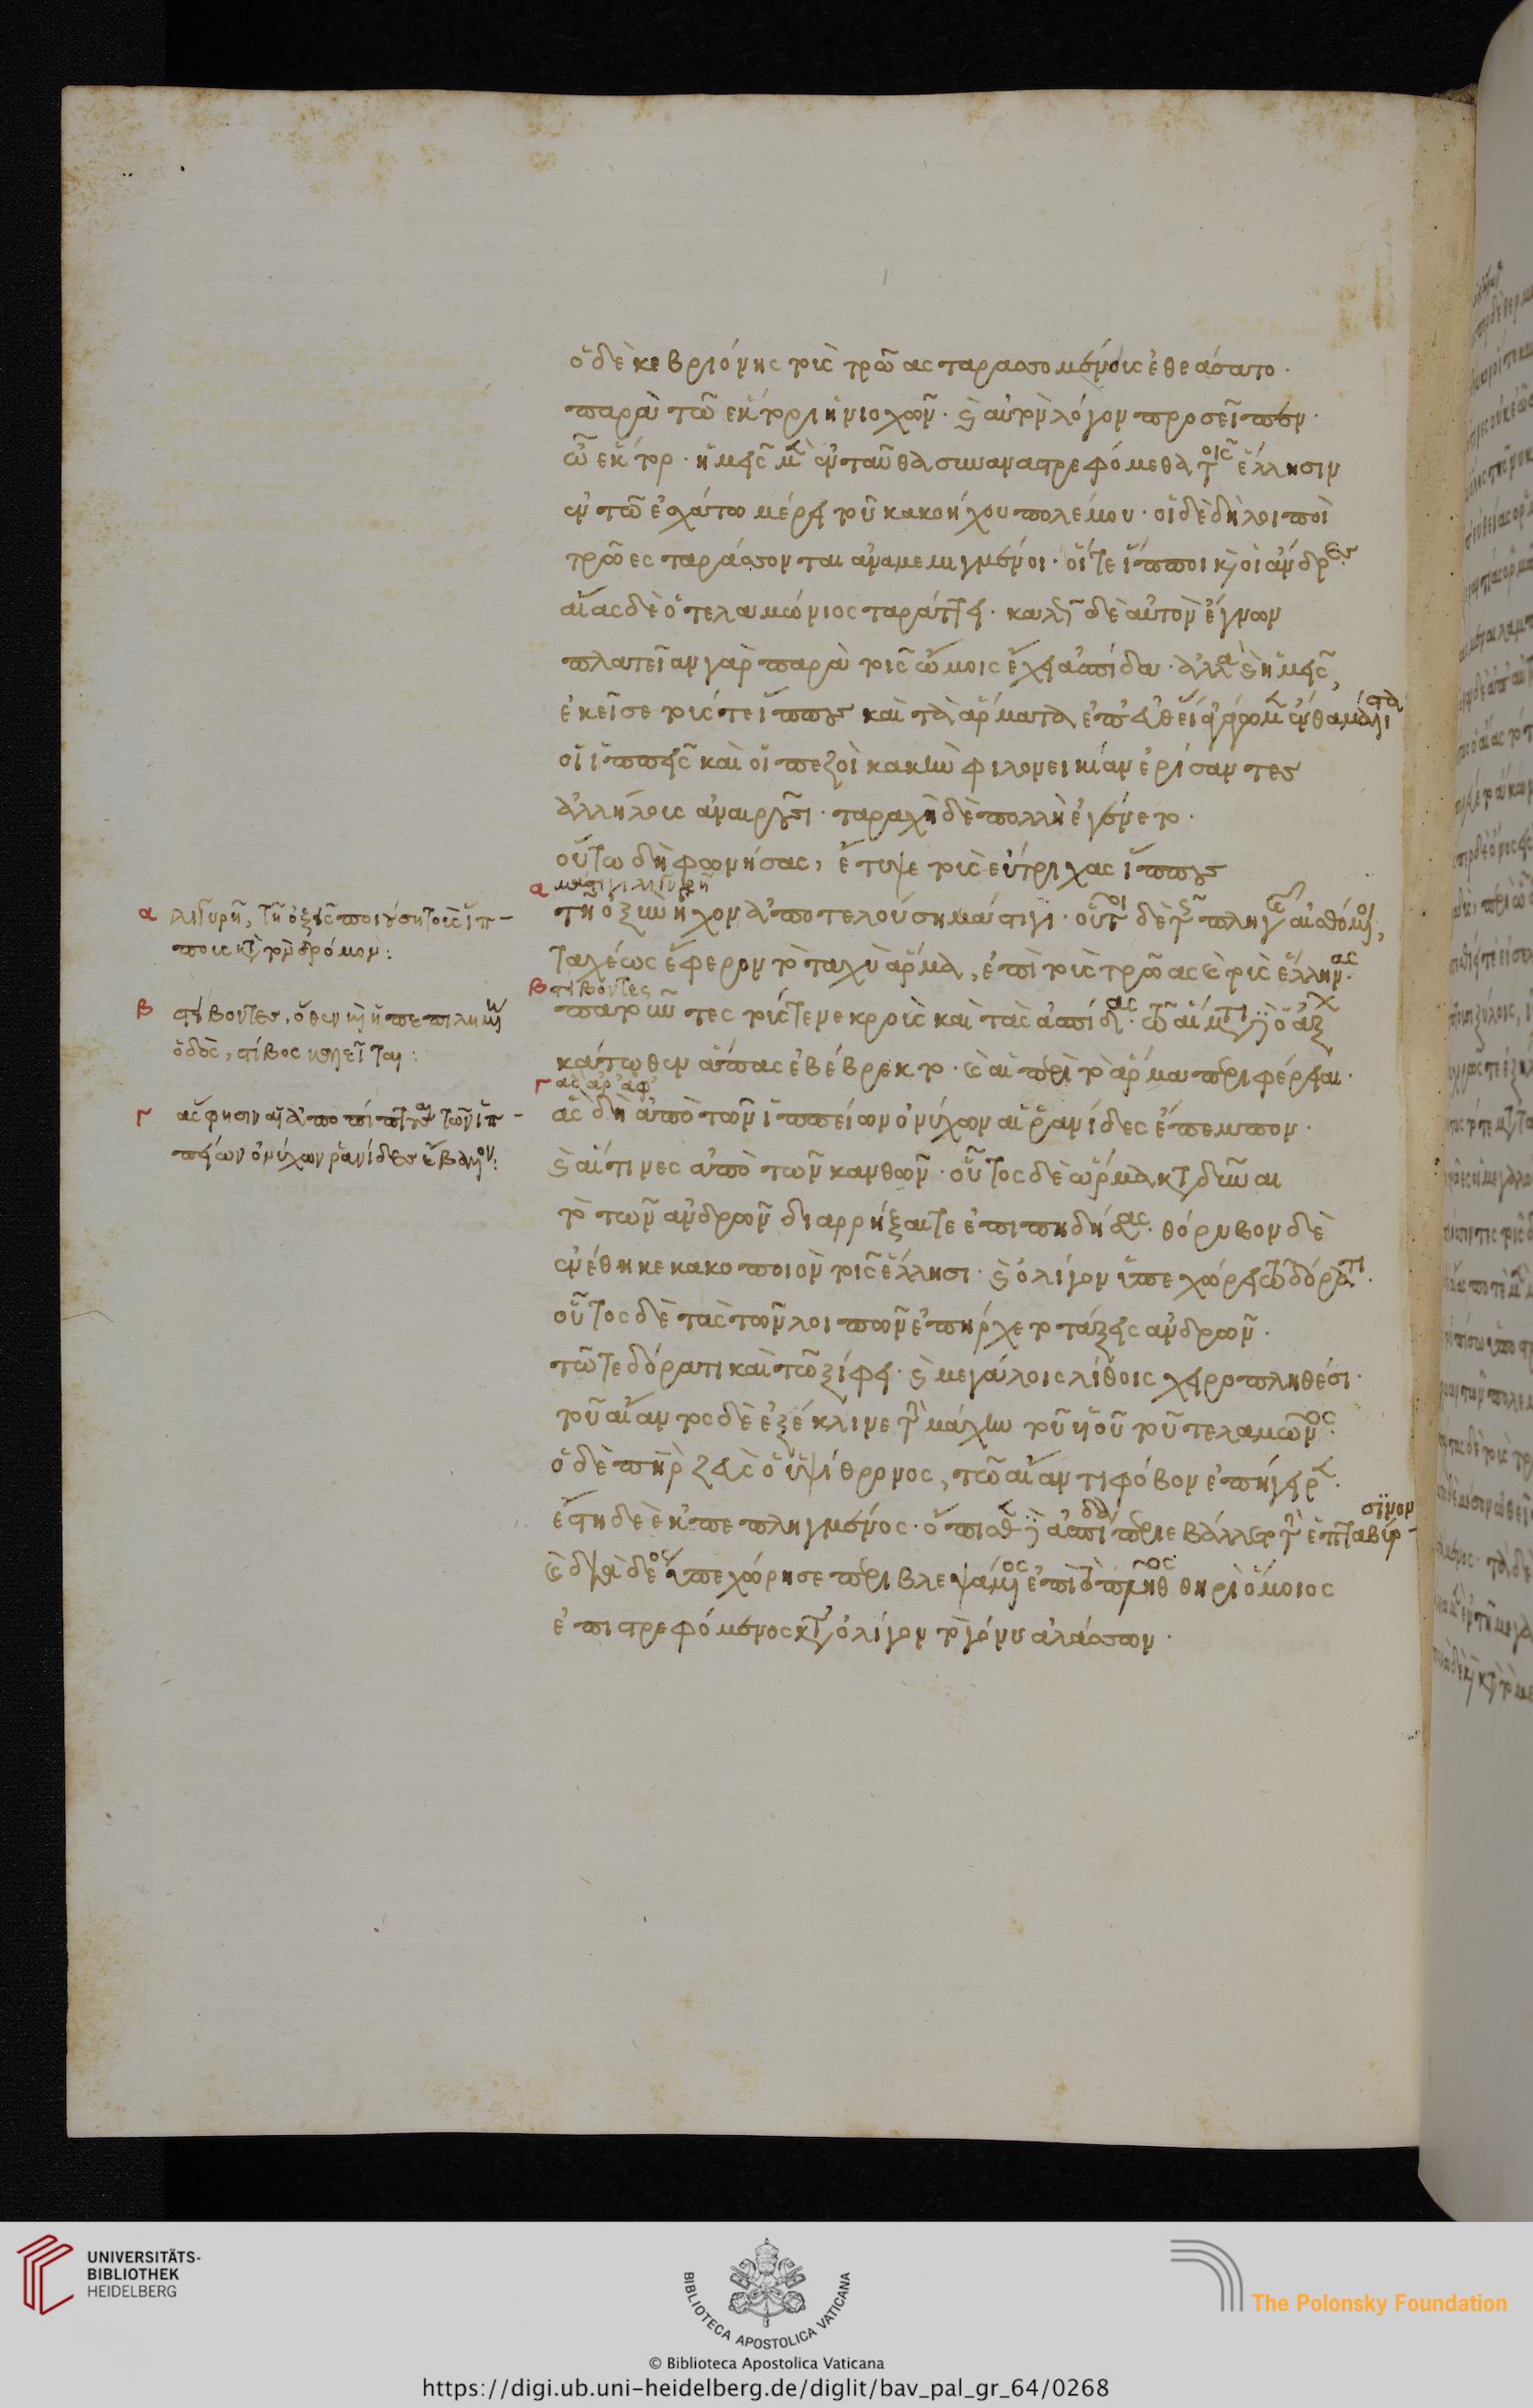 ὁ δὲ κεβριόνης τοὺς τρῶας ταρασσομένους ἐθεάσατο·
παρὰ τῶ ἕκτορι ἡνιοχῶν· καὶ αὐτὸν λόγον προσεῖπεν·
ὦ ἕκτορ· ἡμεῖς μὲν ἐνταῦθα συναναστρεφόμεθα τοῖς ἕλλησιν
ἐν τῶ ἐσχάτω μέρει τοῦ κακοήχου πολέμου· οἱ δὲ δὴ λοιποὶ
τρῶες ταράσσονται ἀναμεμιγμένοι· οἵτε ἵπποι καὶ οἱ ἄνδρες·
αἴας δὲ ὁ τελαμώνιος ταράττει· καλῶς δὲ αὐτὸν ἔγνων
πλατεῖαν γὰρ παρὰ τοῖς ὤμοις ἔχει ἀσπίδα· ἀλλὰ καὶ ἡμεῖς,
ἐκεῖσε τούς τε ἵππους καὶ τὰ ἅρματα ἐπ' ἐνθαμάλιστα
οἱ ἱππεῖς καὶ οἱ πεζοὶ κακὴν φιλονεικίαν ἐρίσαντες
ἀλλήλους ἀναιροῦσι· ταραχὴ δὲ πολλὴ ἐγένετο·
οὕτω δὴ φωνήσας, ἔτυψε τοὺς εὔτριχας ἵππους
α μάστιγι λιγυρῆ
α λιγυρῆ, τῆ ὀξὺς ποιούση τοῖς ἵπ-
ποις κατὰ τὸν δρόμον:
τῆ ὀξὺν ἦχον ἀποτελούση μάστιγι· οὗτοι δὲ τῆς πληγῆς αἰσθόμενοι,
ταχέως ἔφερον τὸ ταχὺ ἅρμα, ἐπὶ τοὺς τρῶας καὶ τοὺς ἕλληνας·
β στείβοντες
β στείβοντες, ὅθεν καὶ ἡ πεπιλημένη
ὁδὸς, στίβος καλεῖται:
πατοῦντες τούς τε νεκροὺς καὶ τὰς ἀσπίδας· τῶ αἵματι δὲ ὁ ἄξων
κάτωθεν ἅπας ἐβέβρεκτο· καὶ αἱ περὶ τὸ ἅρμα περιφέρειαι·
γ ἃς ἄρ' ἀφ'
γ ἃς φησιν αἱ ἀπὸ τῶν ἱπ-
πείων ὀνύχων ῥανίδες ἔβαλλον:
ἃς δὴ ἀπὸ τῶν ἱππείων ὀνύχων αἱ ῥανίδες ἔπεμπον·
καὶ αἵτινες ἀπὸ τῶν κανθῶν· οὗτος δὲ ὥρμα καταδῦναι
τὸ τῶν ἀνδρῶν διαρρῆξαί τε ἐπιπηδήσας· θόρυβον δὲ
ἐνέθηκε κακοποιὸν τοῖς ἕλλησι· καὶ ὀλίγον ὑπεχώρει τῶ δόρατι·
οὗτος δὲ τὰς τῶν λοιπῶν ἐπήρχετο τάξεις ἀνδρῶν·
τῶ τε δόρατι καὶ τῶ ξίφει· καὶ μεγάλοις λίθοις χειροπληθέσι·
τοῦ αἴαντος δὲ ἐξέκλινε τὴν μάχην τοῦ υἱοῦ τοῦ τελαμῶνος·
ὁ δὲ πατὴρ ζεὺς ὁ ὑψίθρονος, τῶ αἴαντι φόβον ἐπήγειρεν·
ἔστη δὲ ἐκπεπληγμένος· ὄπισθεν δὲ ἀσπίδα περιεβάλλετο τὴν ἑπταβύρσινον
ὑπεχώρησε περιβλεψάμενος ἐπὶ τὸ πλῆθος θηρὶ ὅμοιος
ἐπιστρεφόμενος κατ' ὀλίγον τὸ γόνυ ἀλάσσων·
UNIVERSITÄTS-
BIBLIOTHEK
HEIDELBERG
BIBLIOTECA APOSTOLICA VATICANA
The Polonsky Foundation
© Biblioteca Apostolica Vaticana
https://digi.ub.uni-heidelberg.de/diglit/bav_pal_gr_64/0268